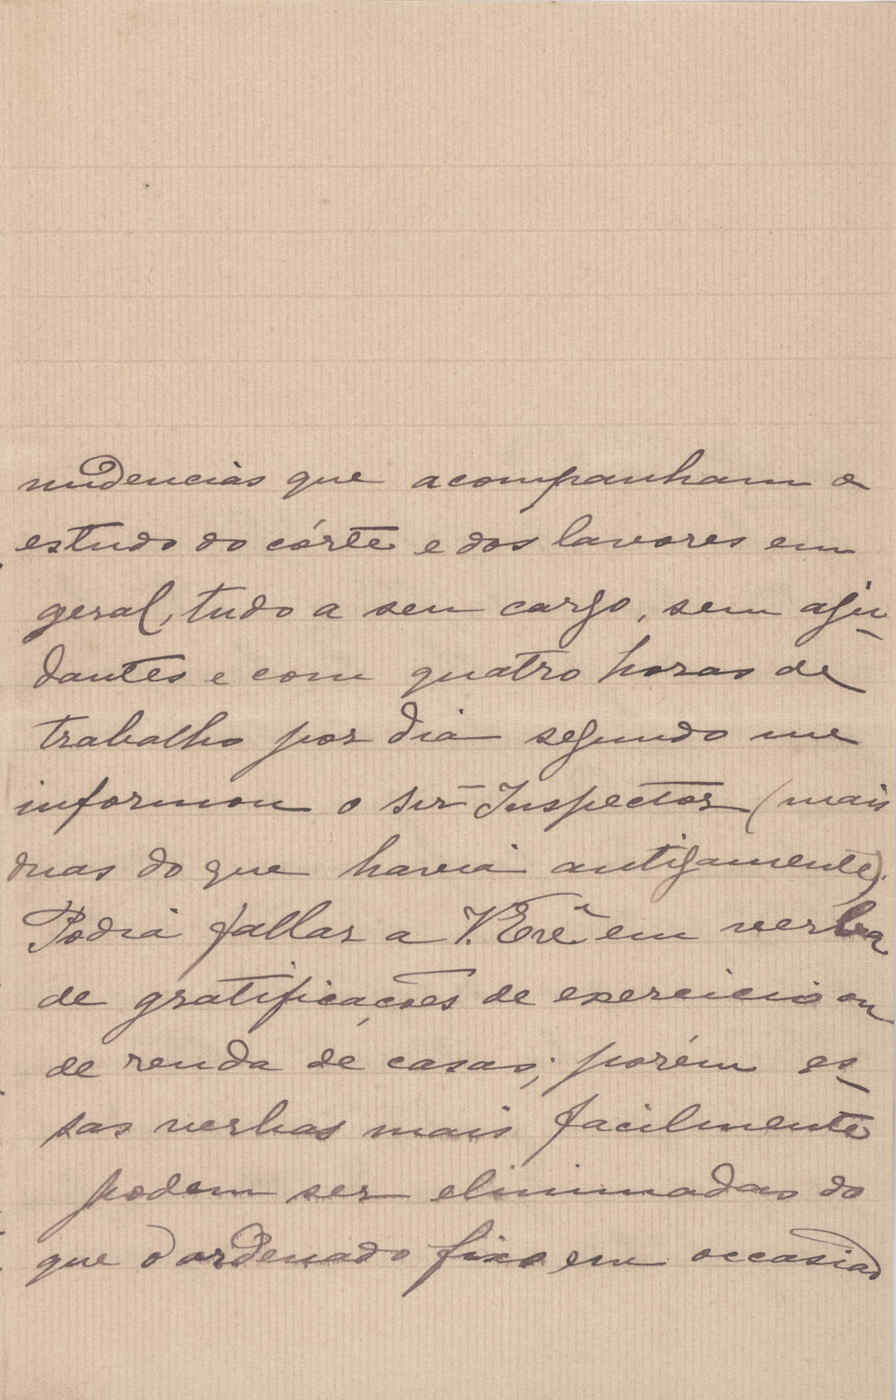 nudencias que acompanham o
estudo do córte e dos lavores em
geral, tudo a seu cargo, sem aju-
dantes e com quatro horas de
trabalho por dia segundo me
informou o snr Inspector (mais
duas do que havia antigamente).
Podia fallar a V. Exê em verba
de gratificações de exercicio ou
de renda de casas; porém es-
sas verbas mais facilmente
podem ser eliminadas do
que o ordenado fixo em occasião